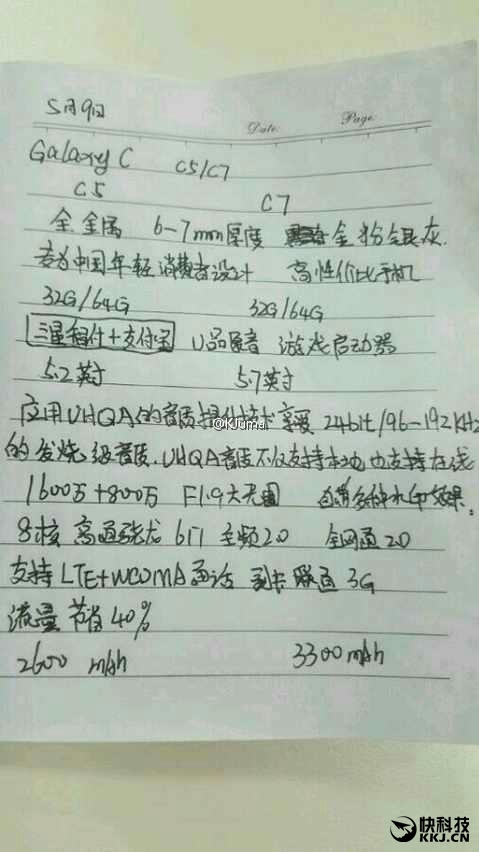 5月9日
Date
Page
Galaxy C C5/C7
C5 C7
全金属 6-7mm厚度 金粉金银灰.
专为中国年轻消费者设计 高性价比手机
32G/64G 32G/64G
三星智付+支付宝 U品音 游戏启动器
5.2英寸 5.7英寸
@KJuma
应用UHQA的音质提升技术 享受 24bit/96-192KHz
的发烧级音质.UHQA音质不仅支持本地也支持在线
1600万+800万 F1.9大光圈 多种水印效果.
8核 高通骁龙 617 主频2.0 全网通2.0
支持LTE+WCDMA通话 副卡联通3G
流量节省40%
2600 mAh 3300mAh
快科技
KKJ.CN